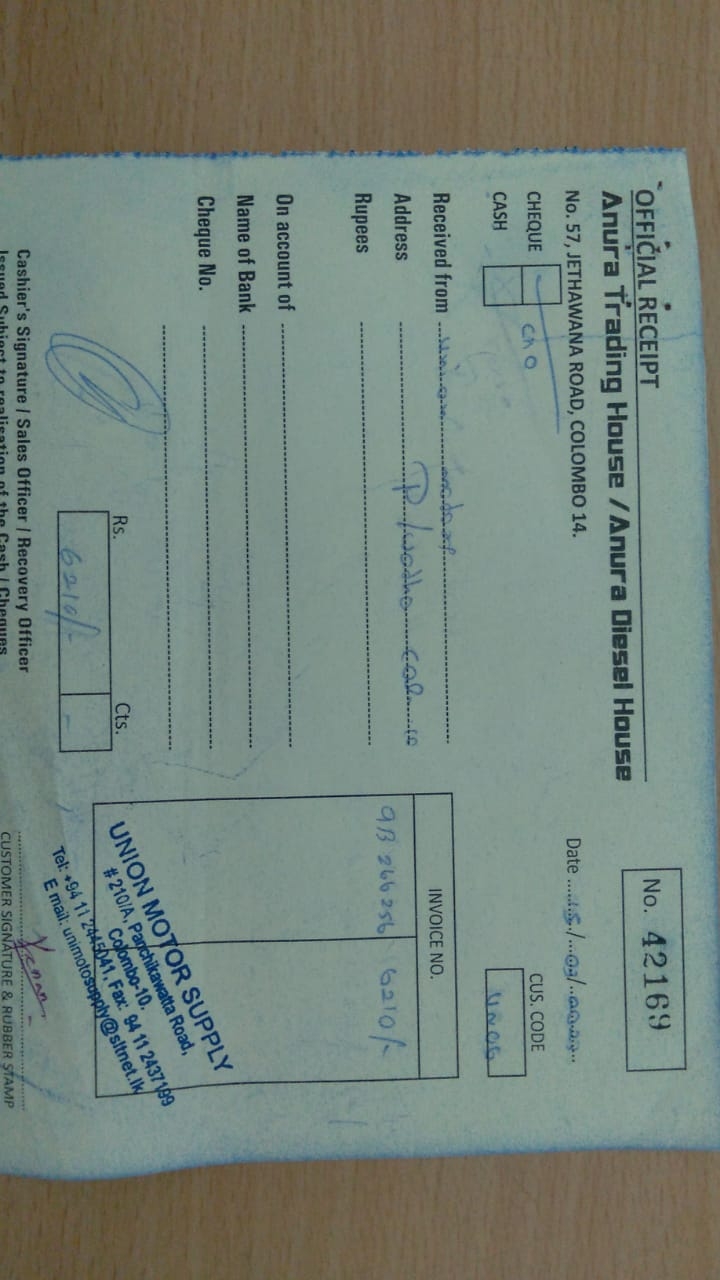 OFFICIAL RECEIPT
Anura Trading House / Anura Diesel House
No. 42169
No. 57, JETHAWANA ROAD, COLOMBO 14.
Date
CHEQUE
CASH
CUS. CODE
Received from
Address
Rupees
On account of
Name of Bank
Cheque No.
INVOICE NO.
266256 6210/-
Rs. Cts.
6210/- -
UNION MOTOR SUPPLY
# 210/A, Panchikawatta Road,
Colombo-10.
Tel: +94 11 2445041, Fax: 94 11 2437199
E mail: unimotosupply@sltnet.lk
Cashier's Signature / Sales Officer / Recovery Officer
Issued Subject to realisation of the Cash / Cheques
CUSTOMER SIGNATURE & RUBBER STAMP